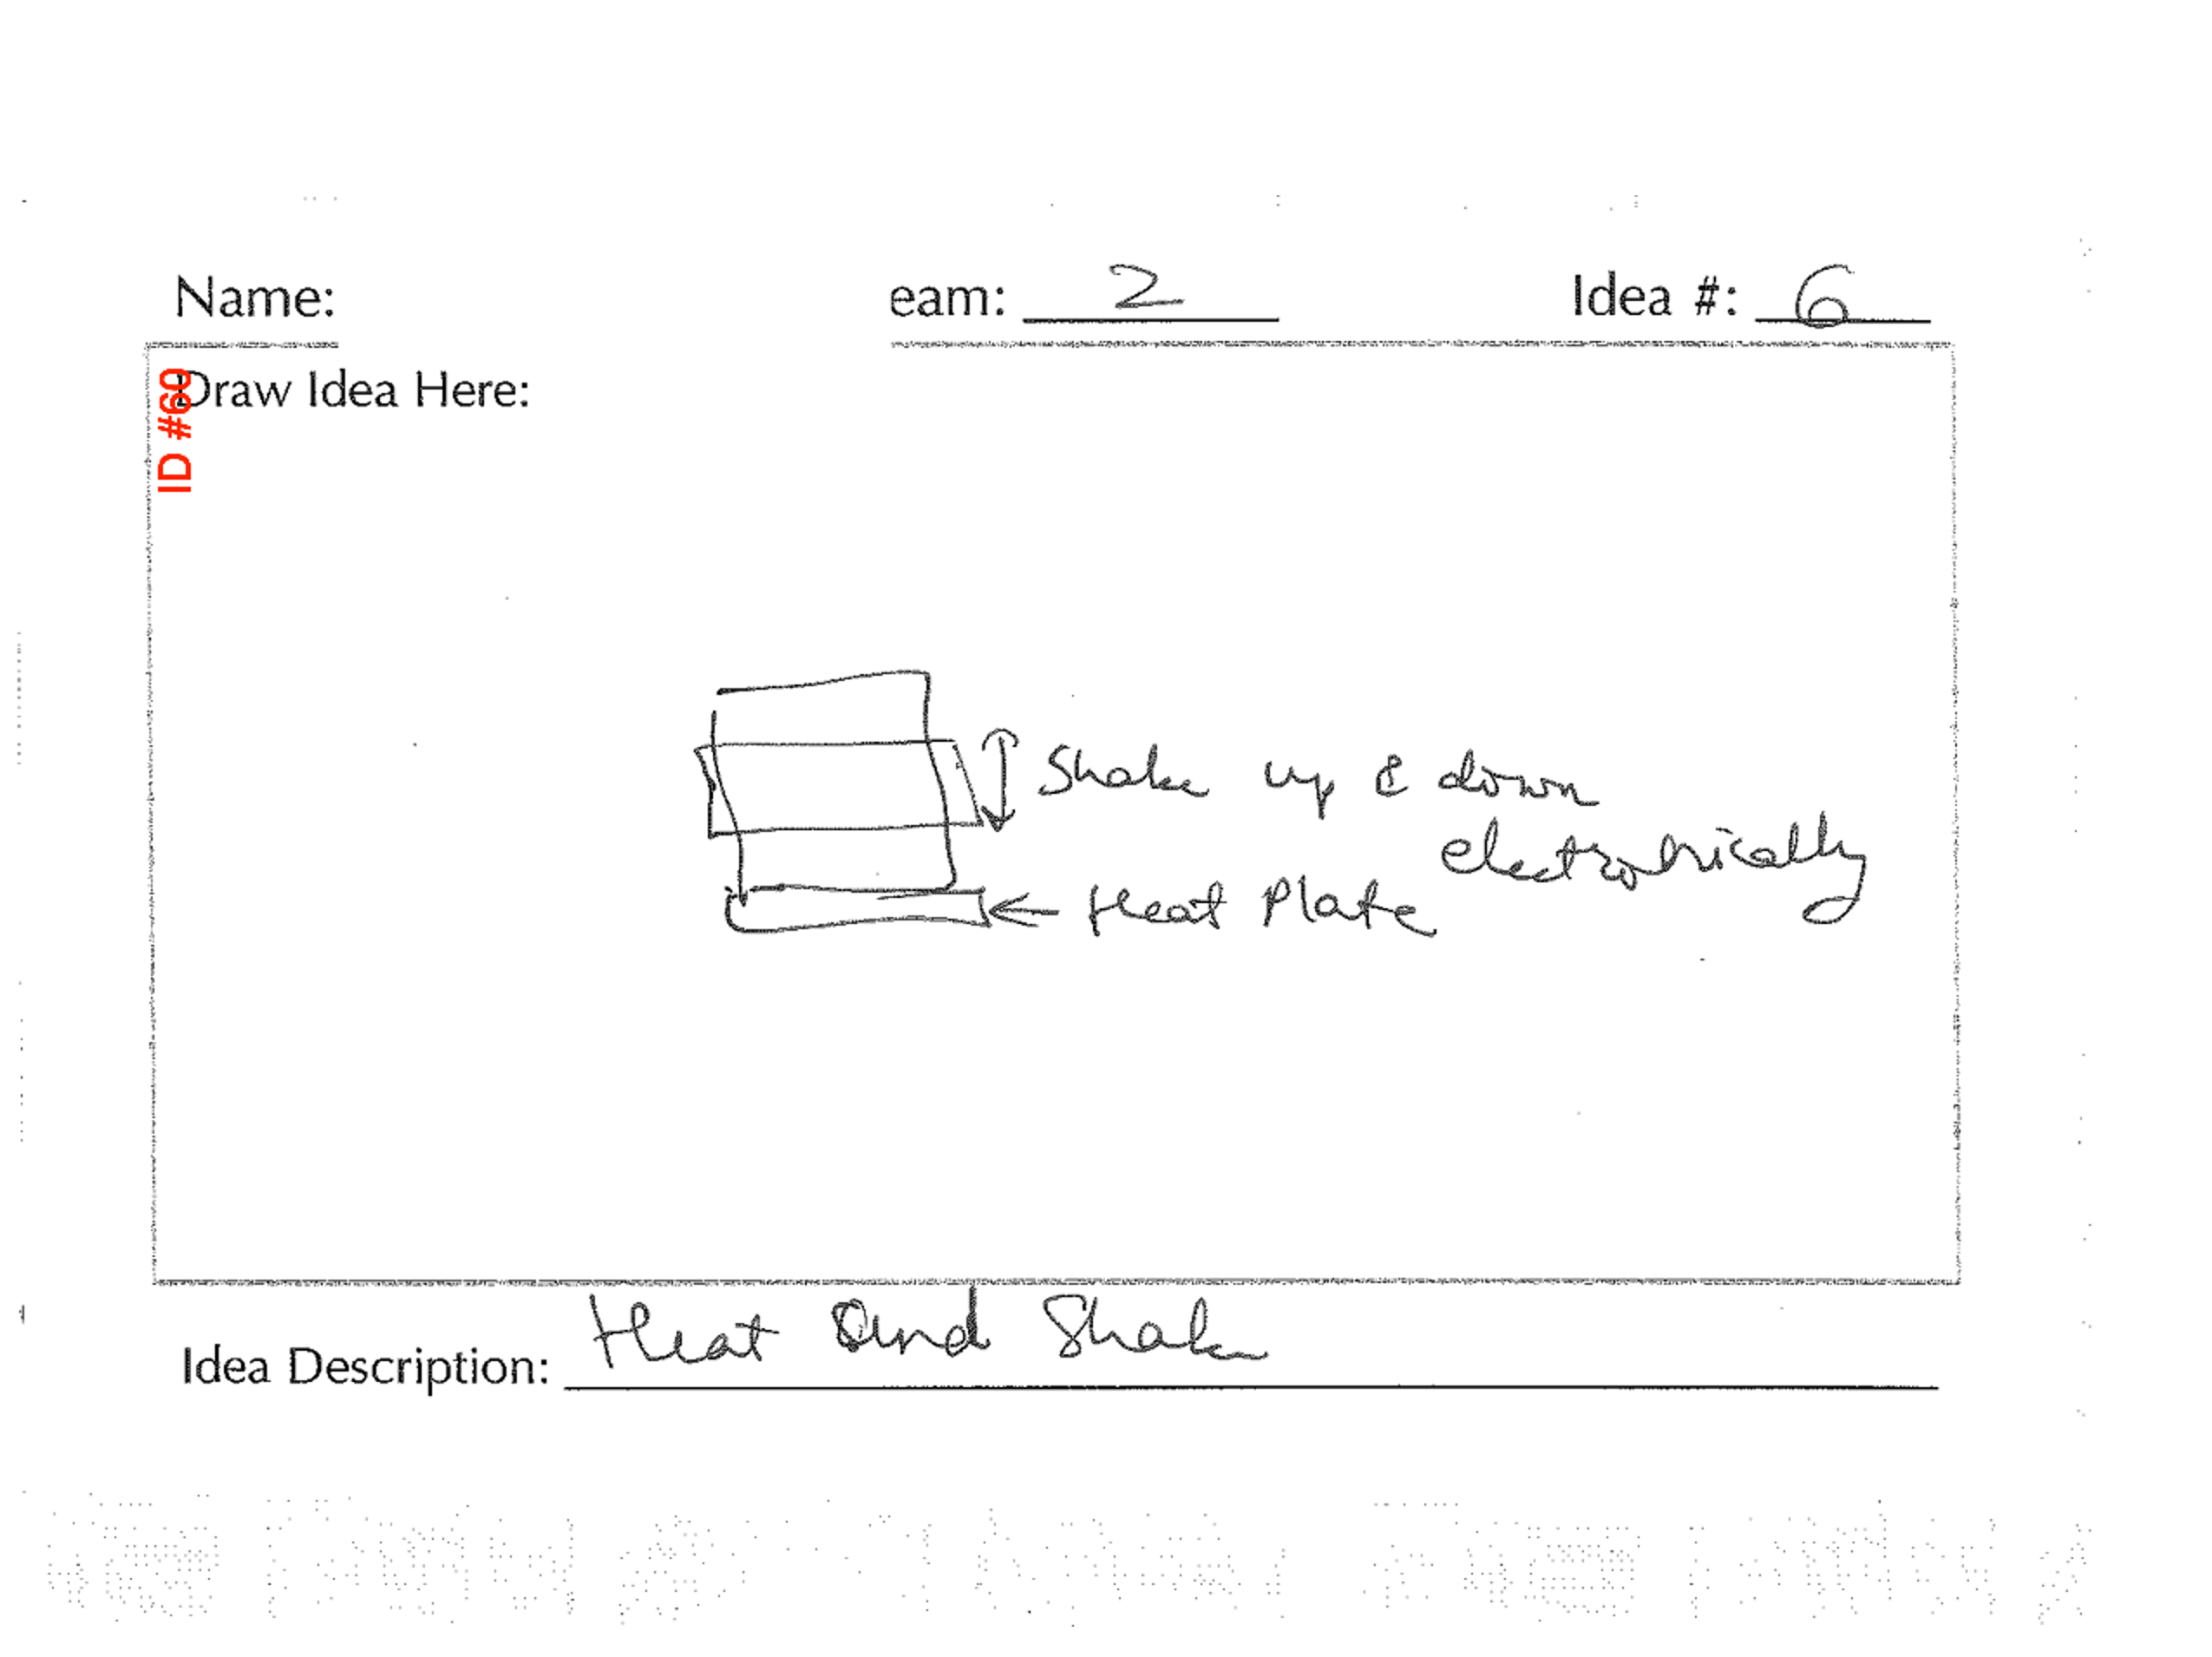 Name:
eam: 2
Idea #: 6
ID #60
Draw Idea Here:
Shake up & down
electronically
← Heat Plate
Idea Description: Heat and Shake